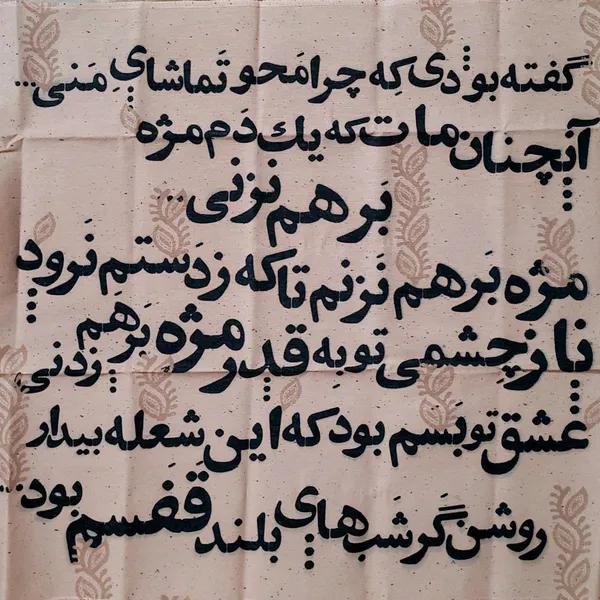 گفته بودی که چرا مَحو تَماشایِ مَنی...
آنچنان مات که یك دَم مژه
بَر هم نزنی...
مژه بَر هم نَزنم تا که ز دَستم نَرود
ناز چِشمی تو بِه قدر مژه بَر هم زدنی
عشق تو بَسم بود که این شعله بیدار
روشن گَر شَب های بلند قَفَسم بود...